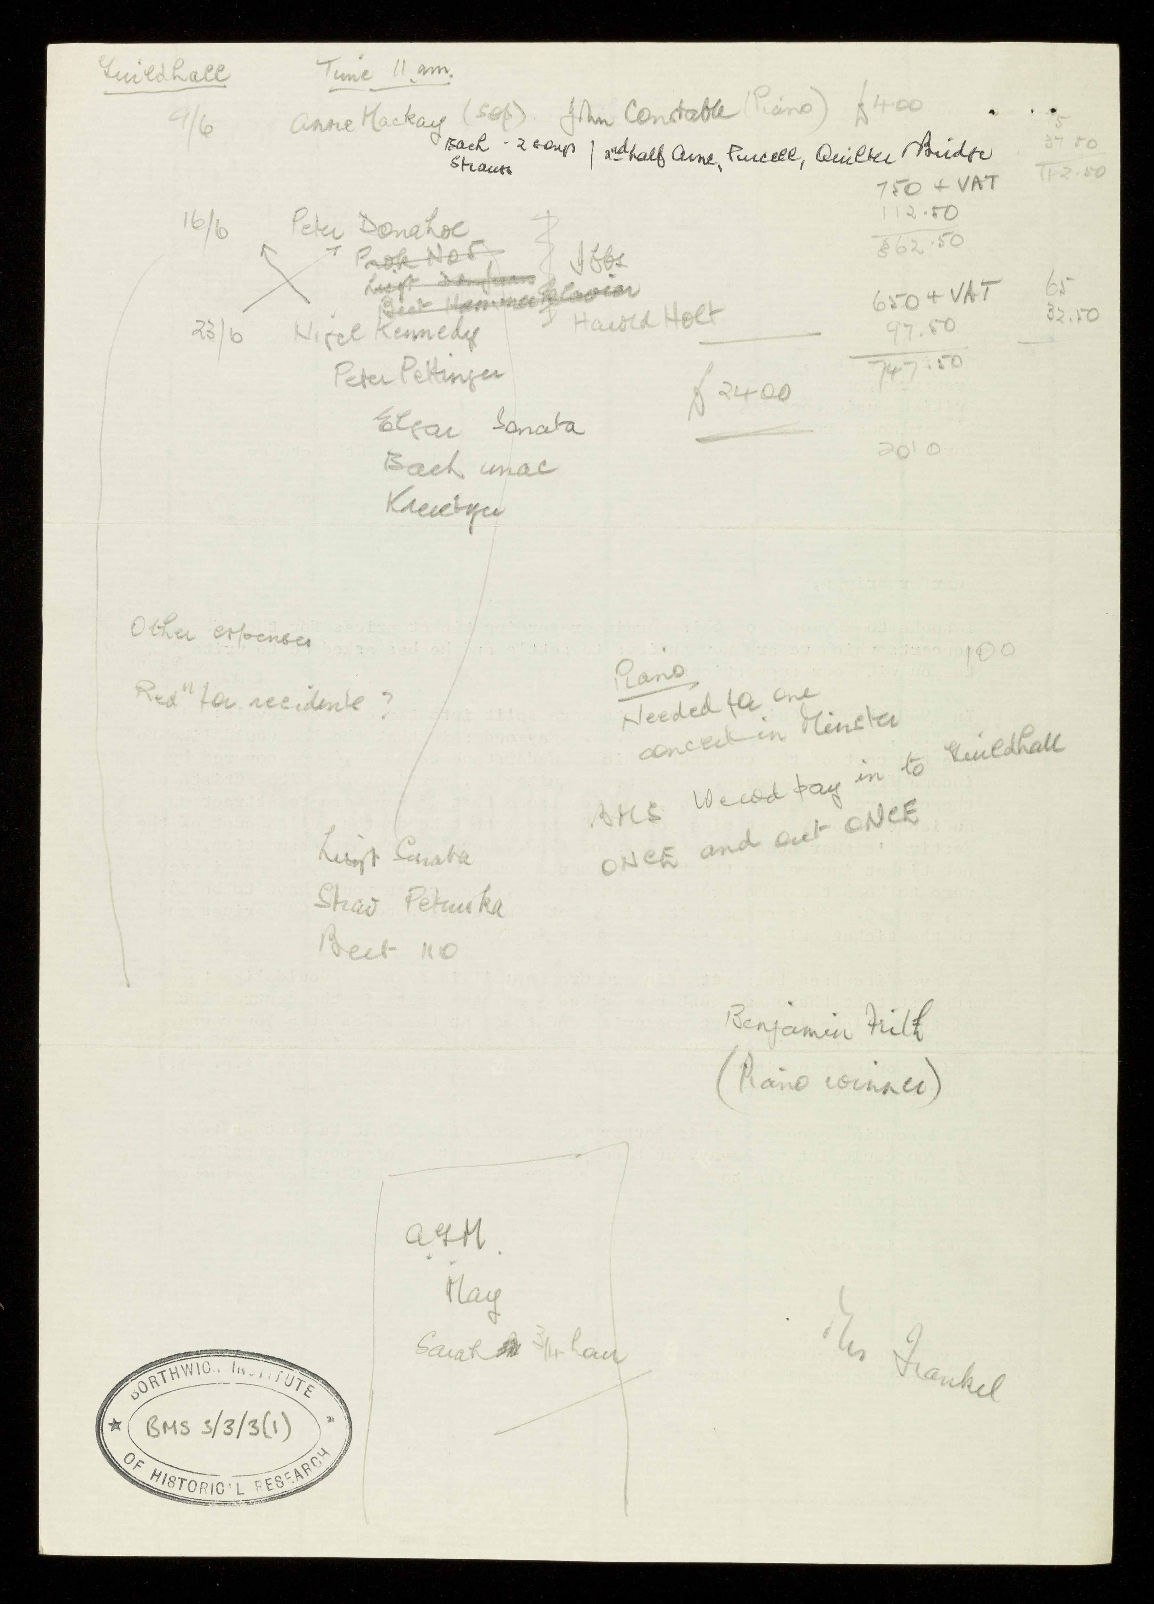 Guildhall Time 11 am.
9/6 Anne Mackay (Sop) John Constable (Piano) £400
Bach - 2 songs | 2nd half Arne, Purcell, Quilter, Bridge
Strauss
75
37.50
112.50
750 + VAT
112.50
862.50
16/6 Peter Donahoe
Prok No 5
Liszt Don Juan
Beet Hammerklavier
Ibbs
23/6 Nigel Kennedy Harold Holt
650 + VAT
97.50
747.50
65
32.50
Peter Pettinger
£2400
Elgar Sonata
2010
Bach unac
Kreisler
Other expenses
100
Redn for residents?
Piano
Needed for one
concert in Minster
BMS would pay in to Guildhall
ONCE and out ONCE
Liszt Sonata
Strav Petruska
Beet 110
Benjamin Frith
(Piano winner)
A.G.M.
May
Sarah 3/4 hour
Mrs Frankel
BORTHWICK INSTITUTE
BMS 3/3/3(1)
OF HISTORIC'L RESEARCH